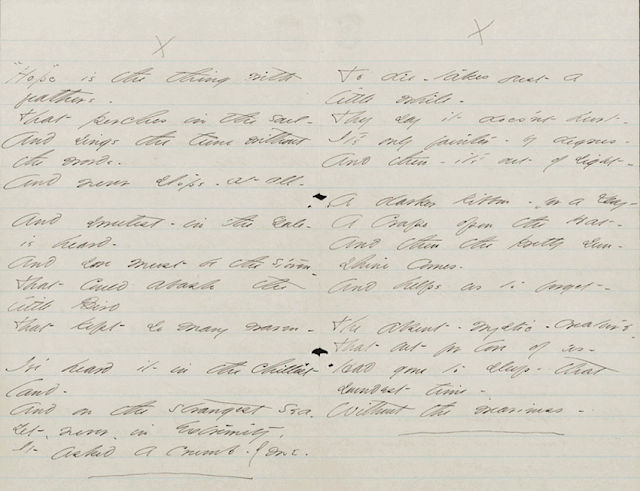 X
"Hope" is the thing with
feathers -
That perches in the soul -
And sings the tune without
the words -
And never stops - at all -
And sweetest - in the Gale -
is heard -
And sore must be the storm -
That could abash the
little Bird
That kept so many warm -
I've heard it - in the chillest
land -
And on the strangest Sea -
Yet - never - in Extremity,
It asked a crumb - of me.
X
To die - takes just a
little while -
They say it doesn't hurt -
It's only fainter - by degrees -
And then - it's out of sight -
A darker Ribbon - for a Day -
A Crape upon the Hat -
And then the pretty sun-
shine comes -
And helps us to forget -
The absent - mystic - creature -
That but for love of us -
Had gone to sleep - that
soundest time -
Without the weariness -